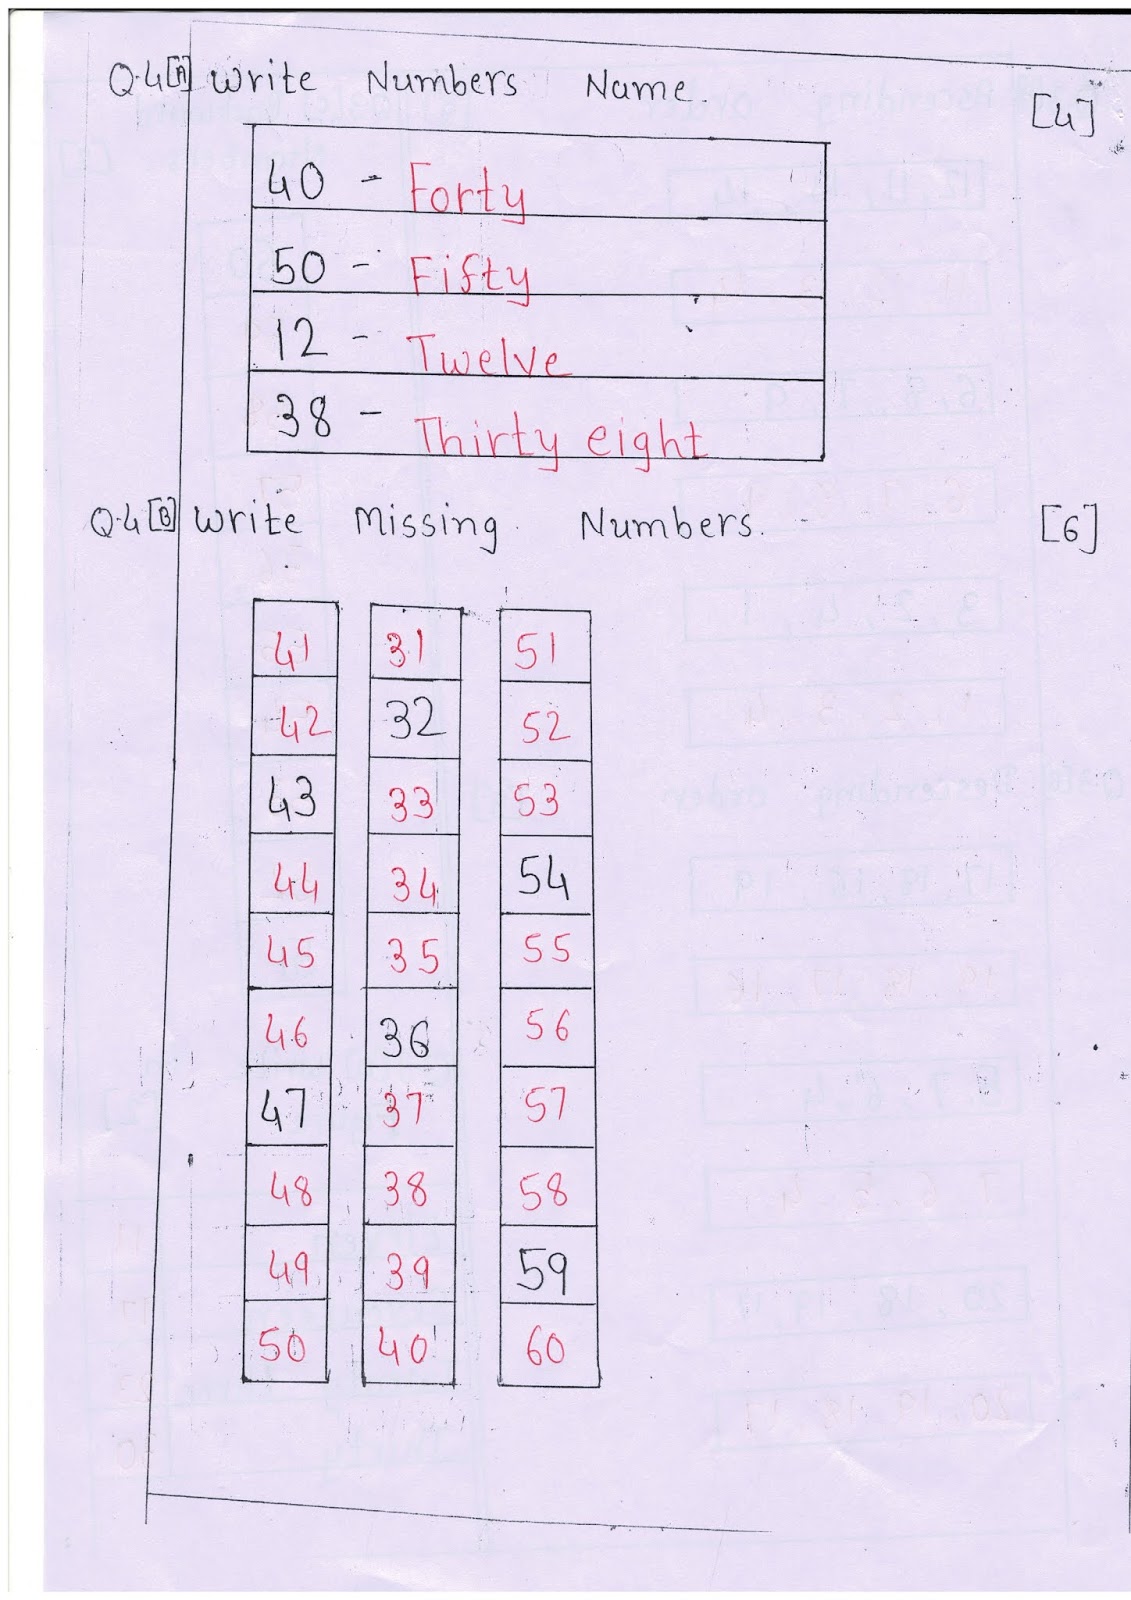 Q.4[A] Write Numbers Name.
[4]
40 - Forty
50 - Fifty
12 - Twelve
38 - Thirty eight
Q.4[B] Write Missing Numbers.
[6]
41 31 51
42 32 52
43 33 53
44 34 54
45 35 55
46 36 56
47 37 57
48 38 58
49 39 59
50 40 60